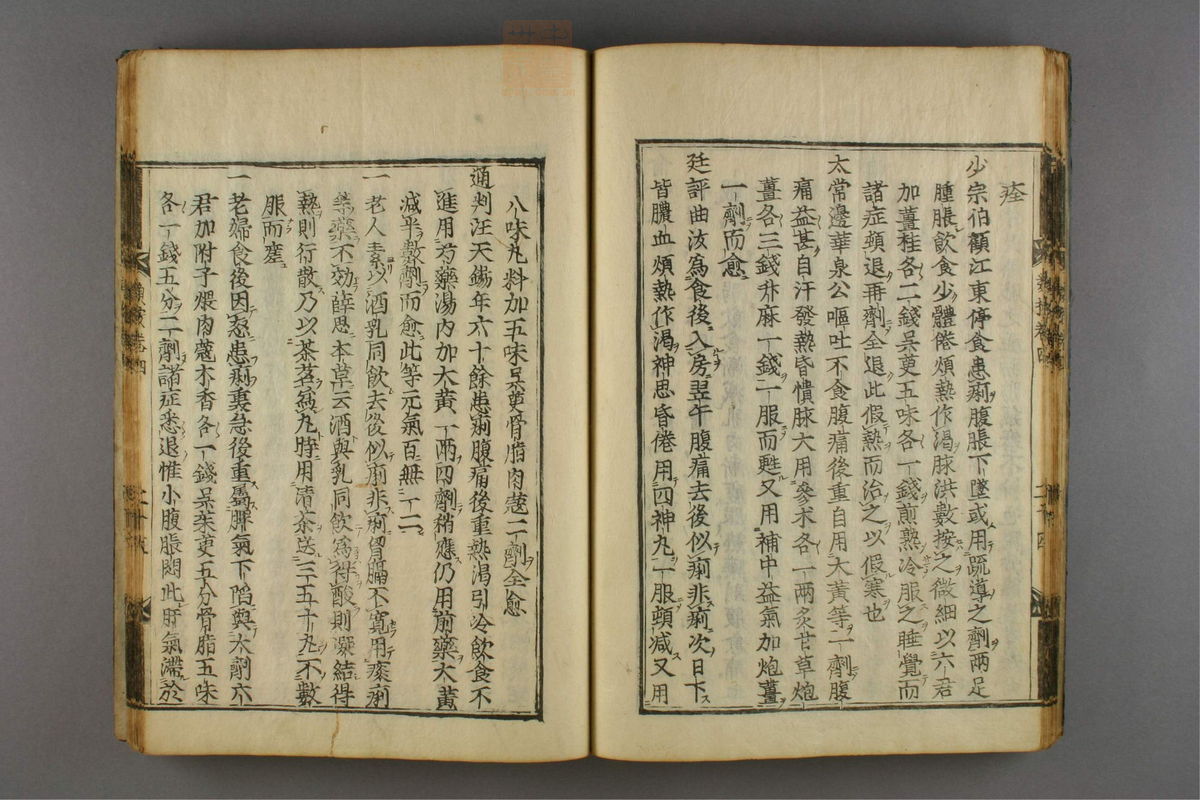 痊
少宗伯顧江東停食患痢腹脹下墜或用疏導之劑兩足
腫脹飲食少體倦煩熱作渴脉洪數按之微細以六君
加薑桂各二錢吳茰五味各一錢煎熟冷服之睡覺而
諸症頓退再劑全退此假熱而治之以假寒也
太常邊華泉公嘔吐不食腹痛後重自用大黃等一劑腹
痛益甚自汗發熱昏憒脉大用參术各一兩炙甘草炮
薑各三錢升麻一錢一服而甦又用補中益氣加炮薑
一劑而愈
廷評曲汝爲食後入房翌午腹痛去後似痢非痢次日下
皆膿血煩熱作渴神思昏倦用四神丸一服頓減又用
八味丸料加五味吳茰骨脂肉蔻二劑全愈
通判汪天錫年六十餘患痢腹痛後重熱渴引冷飲食不
進用芍藥湯內加大黃一兩四劑稍應仍用前藥大黃
減半數劑而愈此等元氣百無一二
一老人素少酒乳同飲去後似痢非痢胷膈不寬用痰痢
等藥不効薛思本草云酒與乳同飲爲得酸則凝結得
熱則行散乃以茶茗爲丸時用清茶送三五十丸不數
服而瘥
一老婦食後因怒患痢裏急後重屬脾氣下陷與大劑六
君加附子煨肉蔻木香各一錢吳茱茰五分骨脂五味
各一錢五分二劑諸症悉退惟小腹脹悶此肝氣滯於